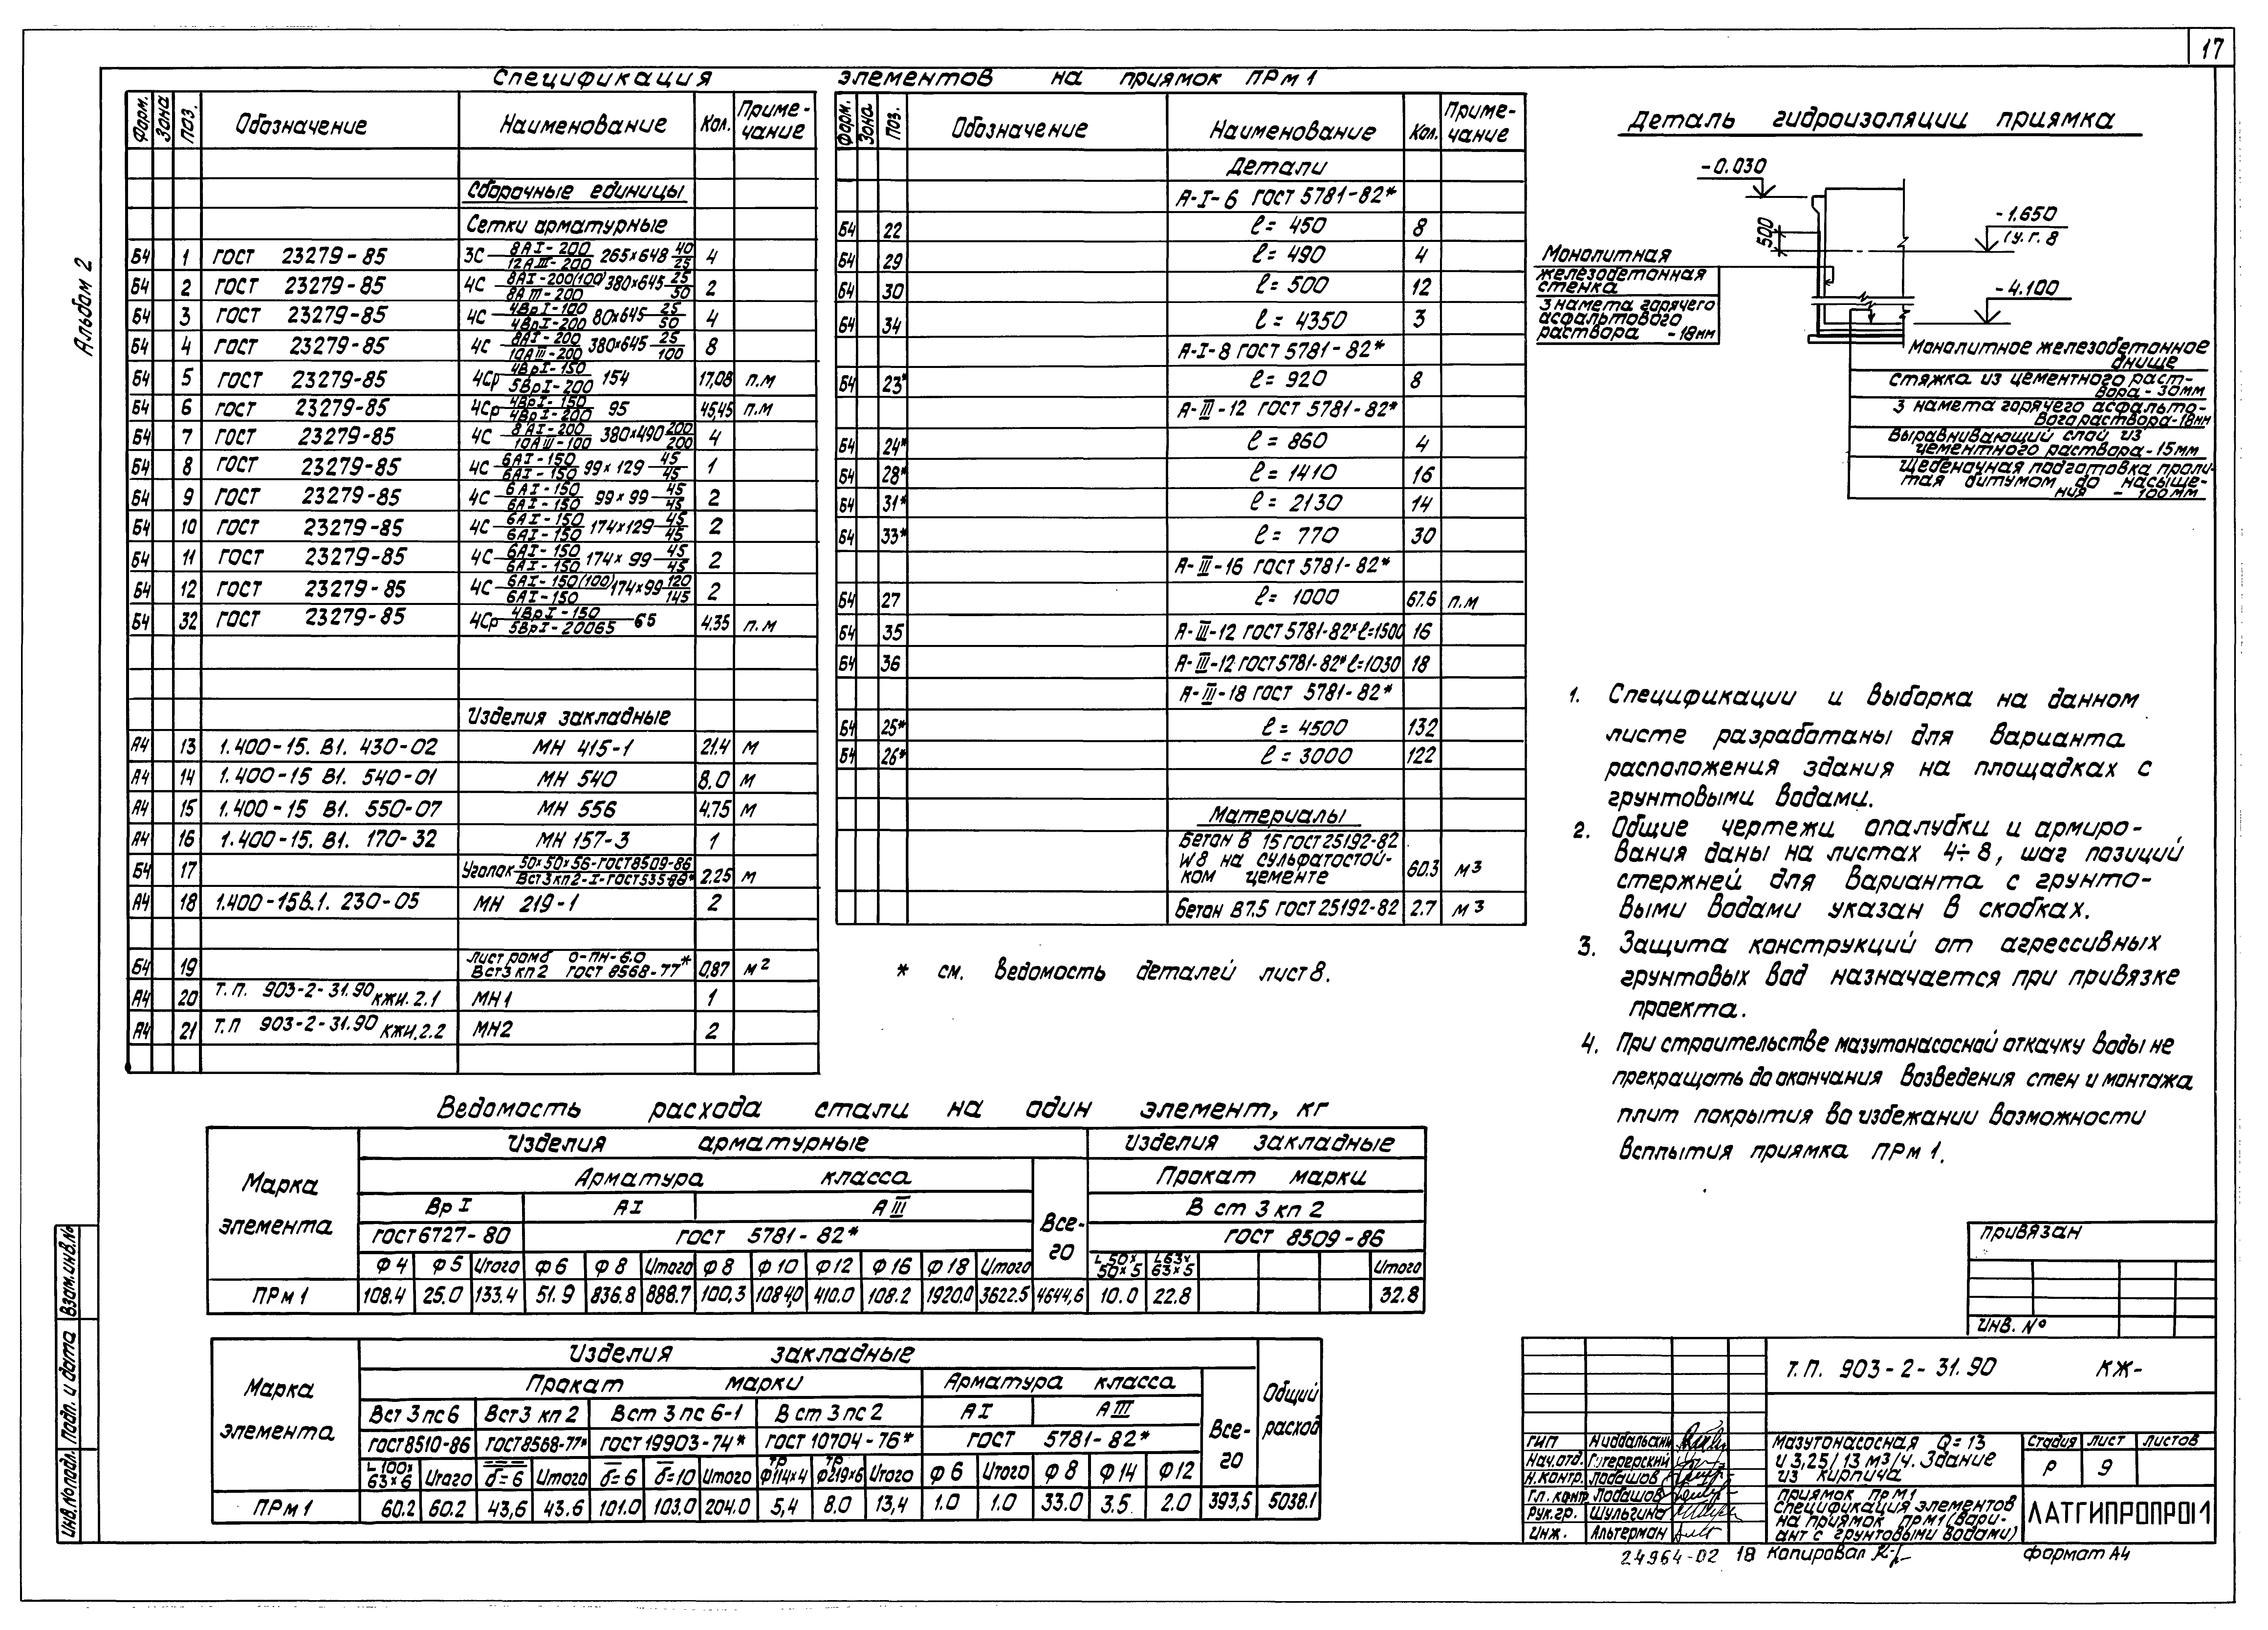 17
Альбом 2
Спецификация элементов на приямок ПРм1
Форм. Зона Поз. Обозначение Наименование Кол. Примечание
Сборочные единицы
Сетки арматурные
Б4 1 ГОСТ 23279-85 3С 8АI-200/12АIII-200 265×648 40/25 4
Б4 2 ГОСТ 23279-85 4С 8АI-200(100)/8АIII-200 380×645 25/50 2
Б4 3 ГОСТ 23279-85 4С 4ВрI-100/4ВрI-200 80×645 25/50 4
Б4 4 ГОСТ 23279-85 4С 8АI-200/10АIII-200 380×645 25/100 8
Б4 5 ГОСТ 23279-85 4Ср 4ВрI-150/5ВрI-200 154 17,08 п.м
Б4 6 ГОСТ 23279-85 4Ср 4ВрI-150/4ВрI-200 95 45,45 п.м
Б4 7 ГОСТ 23279-85 4С 8АI-200/10АIII-100 380×490 200/200 4
Б4 8 ГОСТ 23279-85 4С 6АI-150/6АI-150 99×129 45/45 1
Б4 9 ГОСТ 23279-85 4С 6АI-150/6АI-150 99×99 45/45 2
Б4 10 ГОСТ 23279-85 4С 6АI-150/6АI-150 174×129 45/45 2
Б4 11 ГОСТ 23279-85 4С 6АI-150/6АI-150 174×99 45/45 2
Б4 12 ГОСТ 23279-85 4С 6АI-150(100)/6АI-150 174×99 120/145 2
Б4 32 ГОСТ 23279-85 4Ср 4ВрI-150/5ВрI-20065 65 4.35 п.м
Изделия закладные
А4 13 1.400-15. В1. 430-02 МН 415-1 21.4 м
А4 14 1.400-15 В1. 540-01 МН 540 8.0 м
А4 15 1.400-15 В1. 550-07 МН 556 4.75 м
А4 16 1.400-15. В1. 170-32 МН 157-3 1
Б4 17 Уголок 50×50×5б-ГОСТ8509-86/Вст3кп2-I-ГОСТ535-88* 2.25 м
А4 18 1.400-15В.1. 230-05 МН 219-1 2
Б4 19 Лист ромб О-ПН-6.0 Вст3кп2 ГОСТ 8568-77* 0,87 м²
А4 20 Т.П. 903-2-31.90 КЖИ.2.1 МН1 1
А4 21 Т.П 903-2-31.90 КЖИ.2.2 МН2 2
Форм. Зона Поз. Обозначение Наименование Кол. Примечание
Детали
А-I-6 ГОСТ 5781-82*
Б4 22 ℓ= 450 8
Б4 29 ℓ= 490 4
Б4 30 ℓ= 500 12
Б4 34 ℓ= 4350 3
А-I-8 ГОСТ 5781-82*
Б4 23* ℓ= 920 8
А-III-12 ГОСТ 5781-82*
Б4 24* ℓ= 860 4
Б4 28* ℓ= 1410 16
Б4 31* ℓ= 2130 14
Б4 33* ℓ= 770 30
А-III-16 ГОСТ 5781-82*
Б4 27 ℓ= 1000 67.6 п.м
Б4 35 А-III-12 ГОСТ 5781-82* ℓ=1500 16
Б4 36 А-III-12 ГОСТ 5781-82* ℓ=1030 18
А-III-18 ГОСТ 5781-82*
Б4 25* ℓ= 4500 132
Б4 26* ℓ= 3000 122
Материалы
Бетон В 15 ГОСТ 25192-82
W8 на сульфатостой-
ком цементе 60.3 м³
Бетон В7.5 ГОСТ 25192-82 2.7 м³
* см. ведомость деталей лист 8.
Деталь гидроизоляции приямка
-0.030
-1.650
(у.г.в
500
-4.100
Монолитная
железобетонная
стенка
3 намета горячего
асфальтового
раствора -18мм
Монолитное железобетонное
днище
Стяжка из цементного раст-
вора-30мм
3 намета горячего асфальто-
вого раствора-18мм
Выравнивающий слой из
цементного раствора-15мм
Щебеночная подготовка проли-
тая битумом до насыще-
ния - 100мм
1. Спецификации и выборка на данном
листе разработаны для варианта
расположения здания на площадках с
грунтовыми водами.
2. Общие чертежи опалубки и армиро-
вания даны на листах 4÷8, шаг позиций
стержней для варианта с грунто-
выми водами указан в скобках.
3. Защита конструкций от агрессивных
грунтовых вод назначается при привязке
проекта.
4. При строительстве мазутонасосной откачку воды не
прекращать до окончания возведения стен и монтажа
плит покрытия во избежании возможности
всплытия приямка ПРм1.
Ведомость расхода стали на один элемент, кг
Марка элемента Изделия арматурные Изделия закладные
Арматура класса Всего Прокат марки
Вр I АI АIII В ст 3 кп 2
ГОСТ 6727-80 ГОСТ 5781-82* ГОСТ 8509-86
Ф4 Ф5 Итого Ф6 Ф8 Итого Ф8 Ф10 Ф12 Ф16 Ф18 Итого L50×50×5 L63×63×5 Итого
ПРм1 108.4 25.0 133.4 51.9 836.8 888.7 100,3 1084,0 410.0 108.2 1920.0 3622.5 4644,6 10.0 22.8 32.8
Марка элемента Изделия закладные Общий расход
Прокат марки Арматура класса Всего
Вст 3пс6 Вст3 кп2 Вст 3пс 6-1 Вст 3пс2 АI АIII
ГОСТ8510-86 ГОСТ8568-77* ГОСТ19903-74* ГОСТ 10704-76* ГОСТ 5781-82*
L100×63×6 Итого δ=6 Итого δ=6 δ=10 Итого тр Ф114×4 тр Ф219×6 Итого Ф6 Итого Ф8 Ф14 Ф12
ПРм1 60.2 60.2 43,6 43.6 101.0 103.0 204.0 5,4 8.0 13,4 1.0 1.0 33.0 3.5 2.0 393,5 5038.1
Привязан
Инв. №
Т.П. 903-2-31.90 КЖ-
ГИП
Нач.отд.
Н.контр. Лобашов
Гл.контр Лобашов
Рук.гр. Шульгина
Инж. Альтерман
Мазутонасосная Q=13
и 3,25/13 м³/ч. Здание
из кирпича
Стадия Лист Листов
Р 9
Приямок ПРм1
Спецификация элементов
на приямок ПРм1 (вари-
ант с грунтовыми водами)
ЛАТГИПРОПРОМ
24964-02 18 Копировал
Формат А4
Инв.№подл. Подп. и дата Взам.инв.№